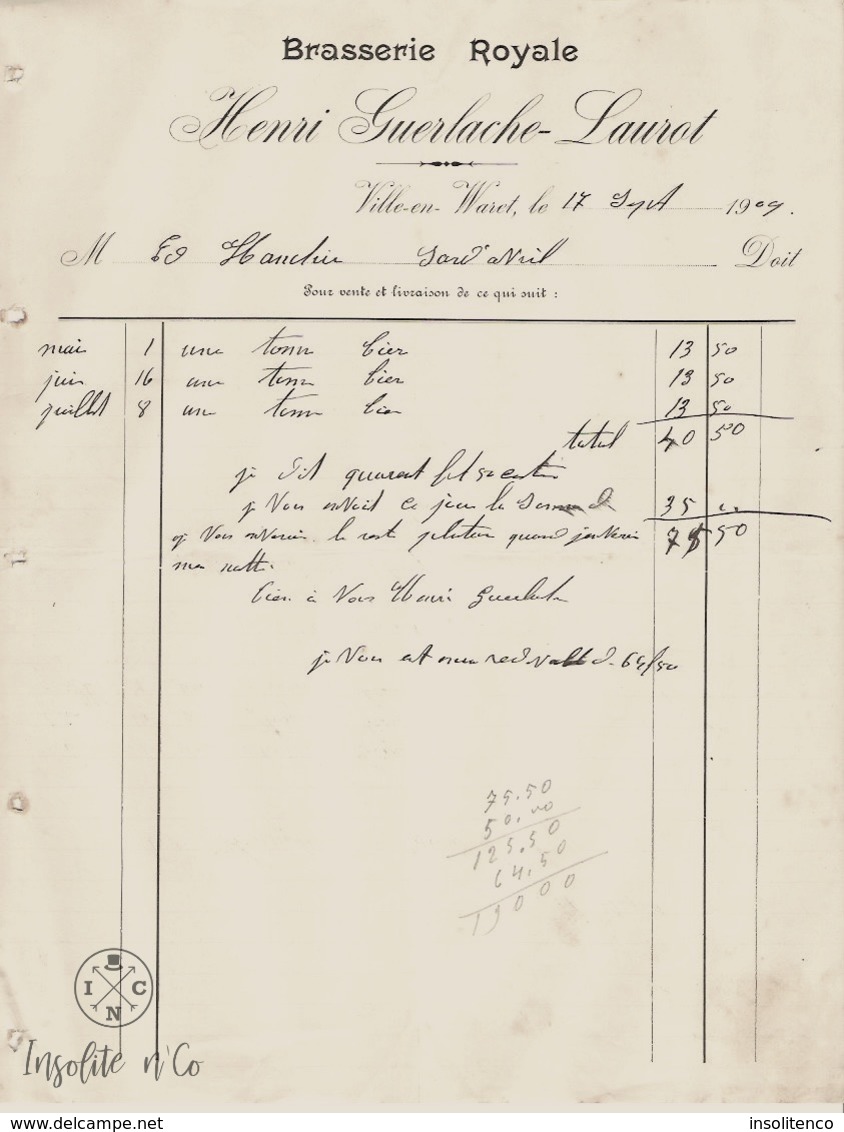 Brasserie Royale
Henri Guerlache-Laurot
Ville-en-Waret, le 17 Sept 1909.
M Ed Hanchir Sard'avril Doit
Pour vente et livraison de ce qui suit :
mai 1 une tonn bier 13 50
juin 16 une tonn bier 13 50
juillet 8 une tonn bier 13 50
total 40 50
je dit quarant
je Vous ce jour la 35
je Vous le reste quand 75 50
ma
bien à Vous Henri Guerlache
je Vous est 64/50
75.50
50.00
125.50
64.50
19000
I C N
Insolite n'Co
www.delcampe.net
insolitenco